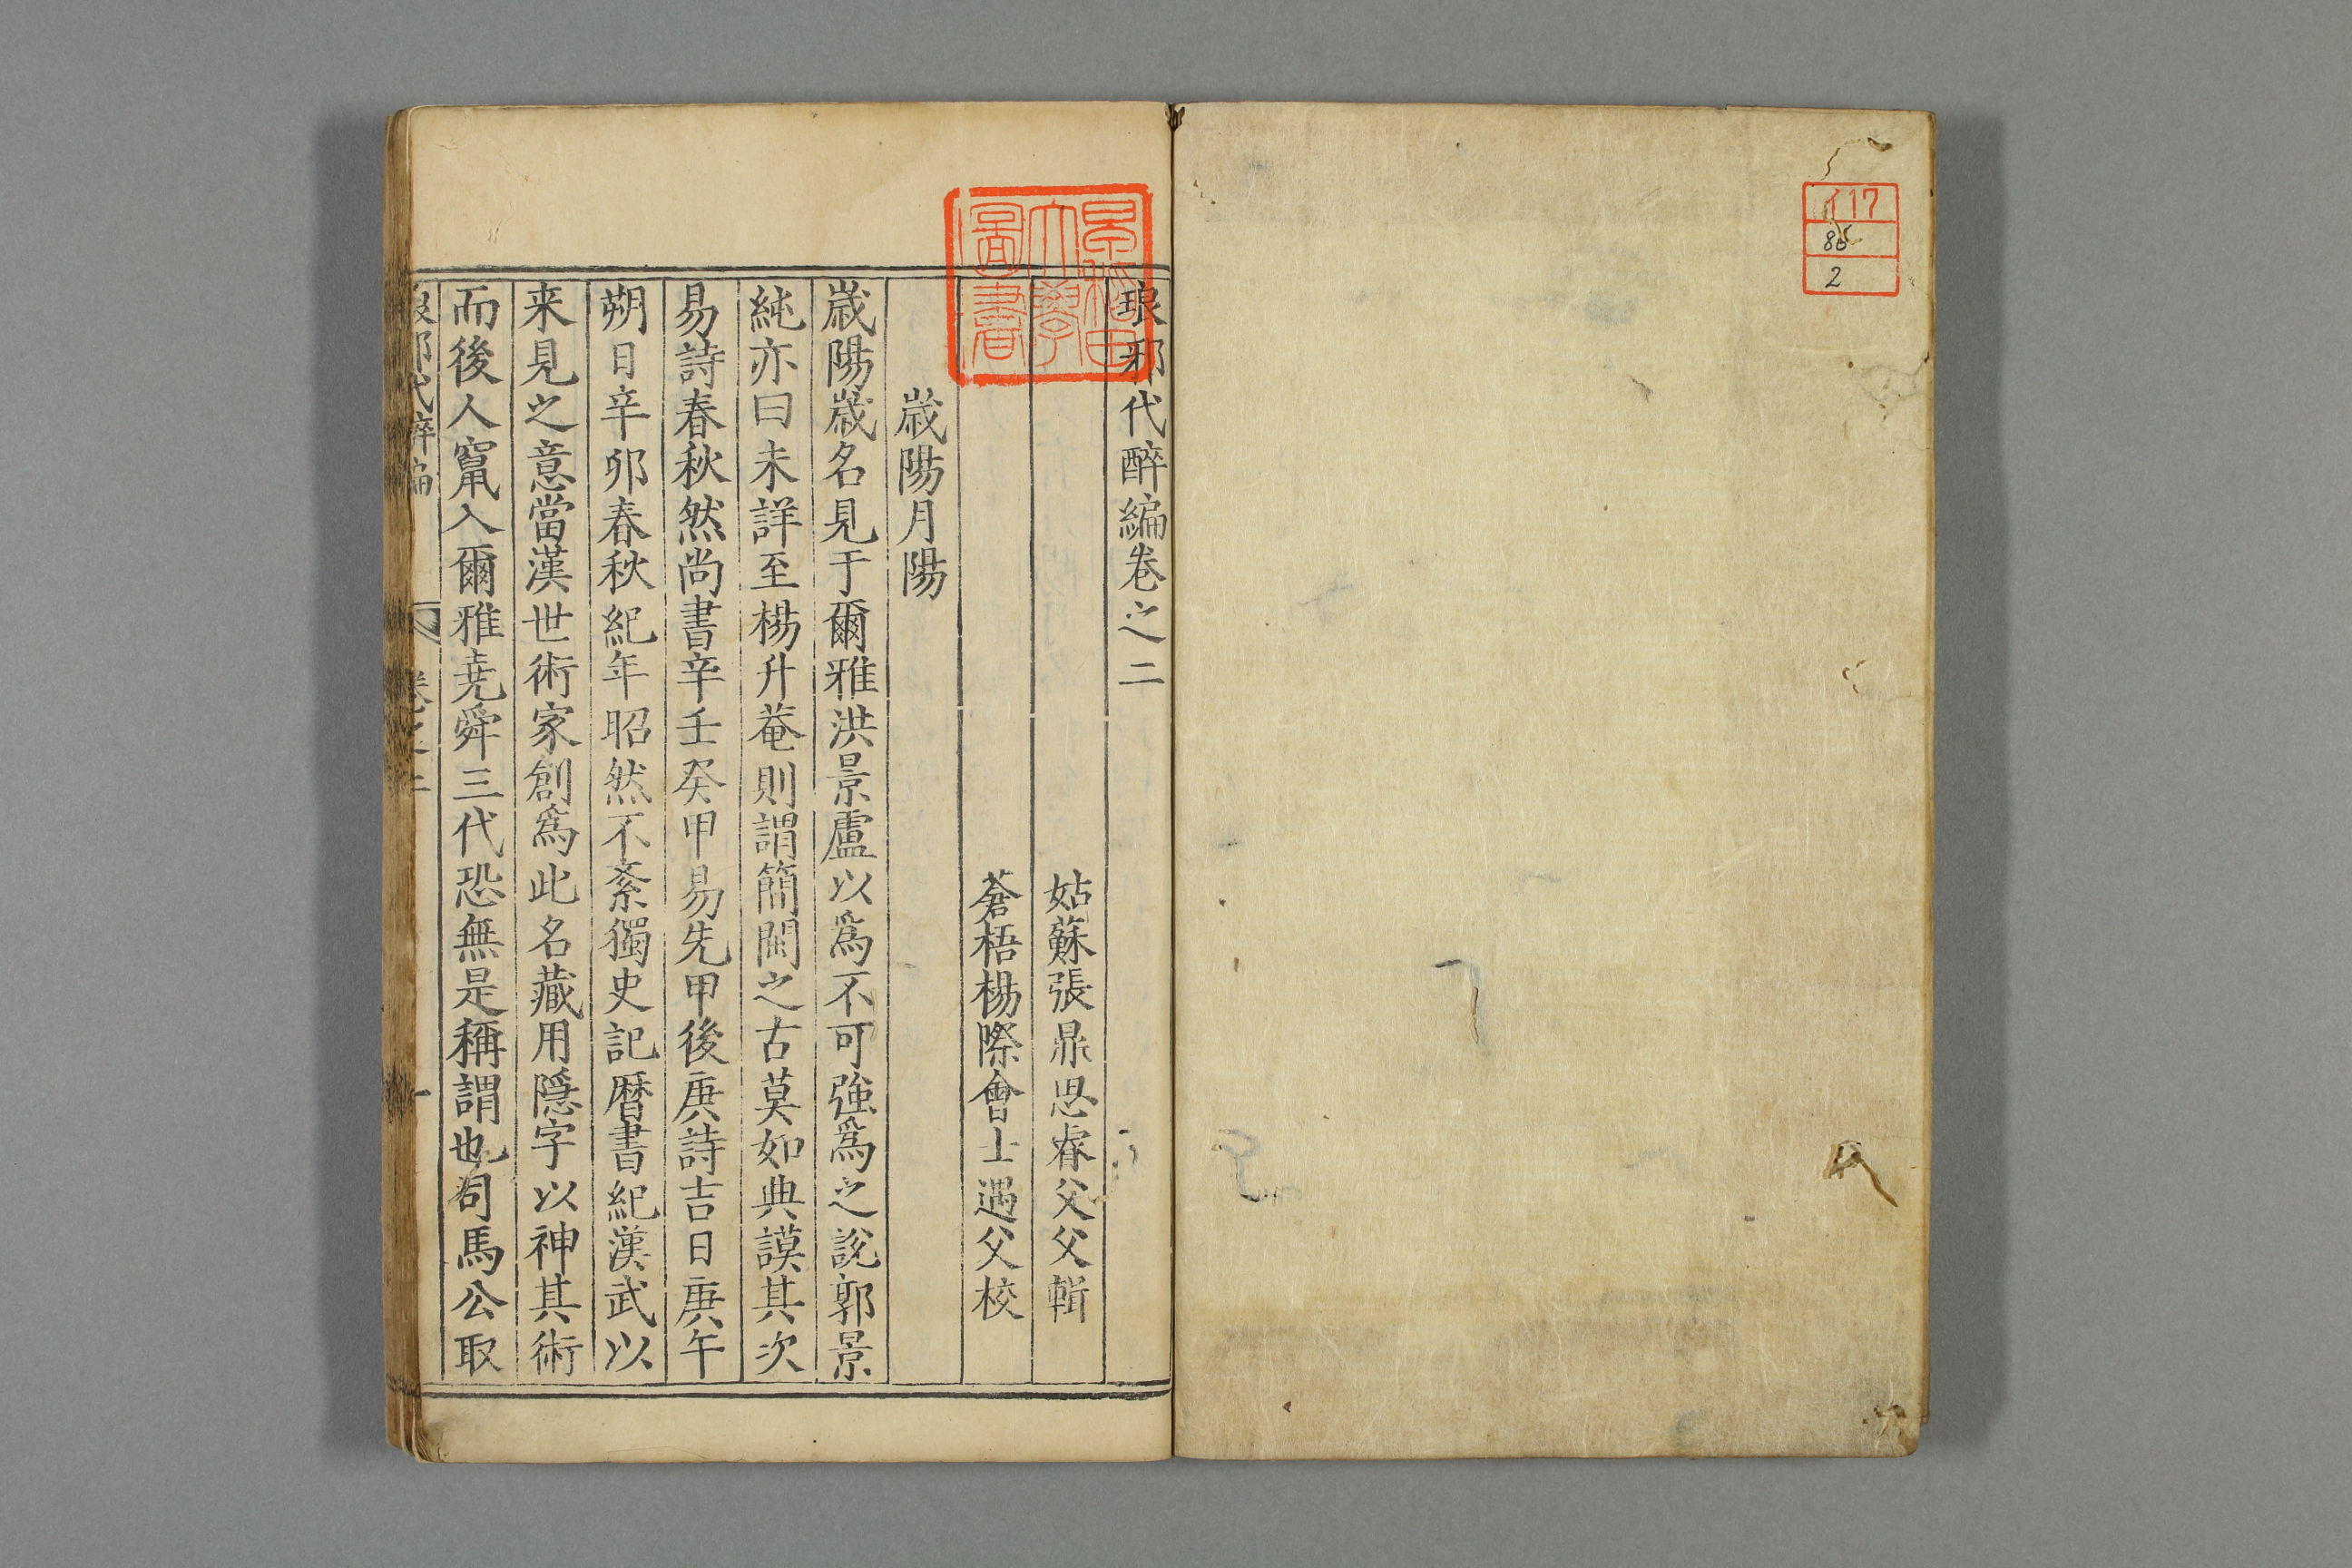 イ17
86
2
早稲田
大學
圖書
琅邪代醉編卷之二
姑蘇張鼎思睿父父輯
蒼梧楊際會士遇父校
歲陽月陽
歲陽歲名見于爾雅洪景盧以爲不可強爲之說郭景
純亦曰未詳至楊升菴則謂簡闕之古莫如典謨其次
易詩春秋然尚書辛壬癸甲易先甲後庚詩吉日庚午
朔日辛卯春秋紀年昭然不紊獨史記暦書紀漢武以
来見之意當漢世術家創爲此名藏用隱字以神其術
而後人竄入爾雅尭舜三代恐無是稱謂也司馬公取
代醉編
卷之二
一